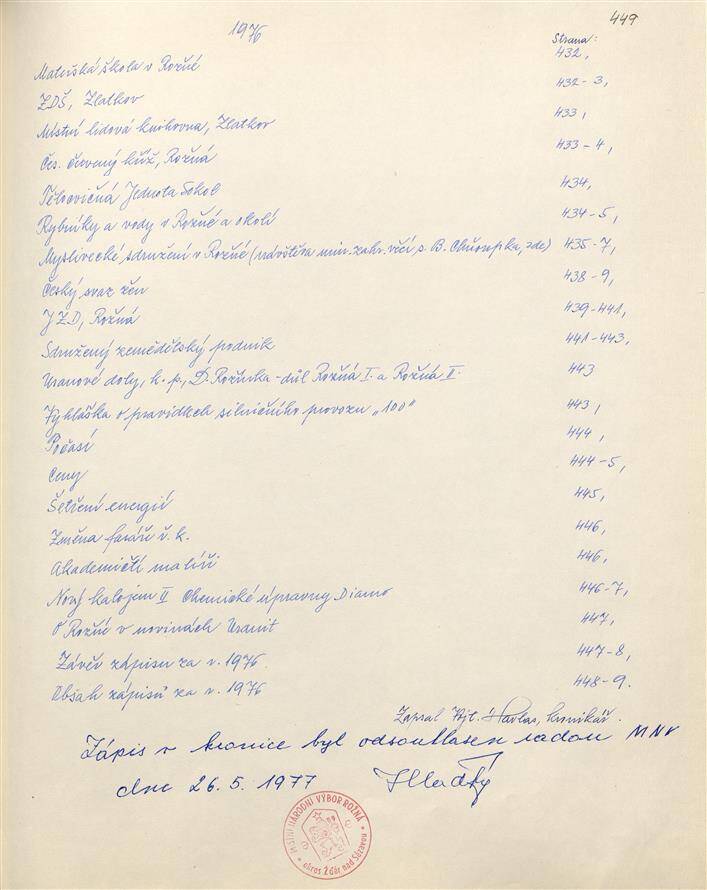 449
1976
Strana:
Mateřská škola v Rožné 432,
ZDŠ, Zlatkov 432-3,
Místní lidová knihovna, Zlatkov 433,
Čes. červený kříž, Rožná 433-4,
Tělovičná Jednota Sokol 434,
Rybníky a vody v Rožné a okolí 434-5,
Myslivecké sdružení v Rožné (návštěva min. zahr. věcí s. B. Chňoupka, zde) 435-7,
Český svaz žen 438-9,
JZD, Rožná 439-441,
Sdružený zemědělský podnik 441-443,
Uranové doly, k. p., D. Rožínka - důl Rožná I. a Rožná II. 443
Vyhláška o pravidlech silničního provozu „100" 443,
Počasí 444,
Ceny 444-5,
Šetření energií 445,
Změna faráře ř. k. 446,
Akademičtí malíři 446,
Nový kalojem II Chemické úpravny Diamo 446-7,
O Rožné v novinách Uranit 447,
Závěr zápisu za r. 1976 447-8,
Obsah zápisů za r. 1976 448-9.
Zapsal Vojt. Havlas, kronikář.
Zápis v kronice byl odsouhlasen radou MNV
dne 26. 5. 1977
MÍSTNÍ NÁRODNÍ VÝBOR ROŽNÁ
okres Žďár nad Sázavou